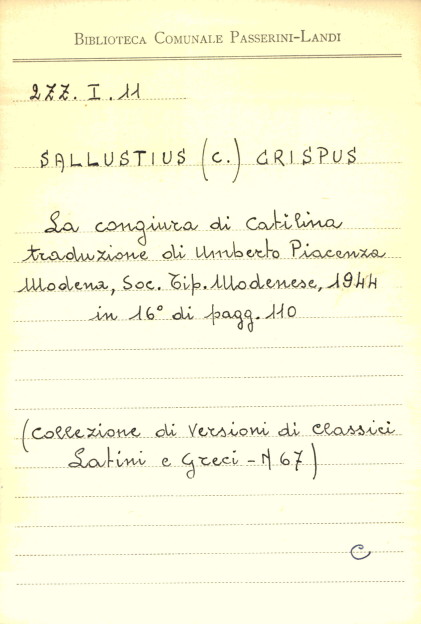 BIBLIOTECA COMUNALE PASSERINI-LANDI
2ZZ. I. 11
SALLUSTIUS (C.) CRISPUS
La congiura di Catilina
traduzione di Umberto Piacenza
Modena, Soc. Tip. Modenese, 1944
in 16° di pagg. 110
(Collezione di Versioni di Classici
Latini e Greci - N 67)
C